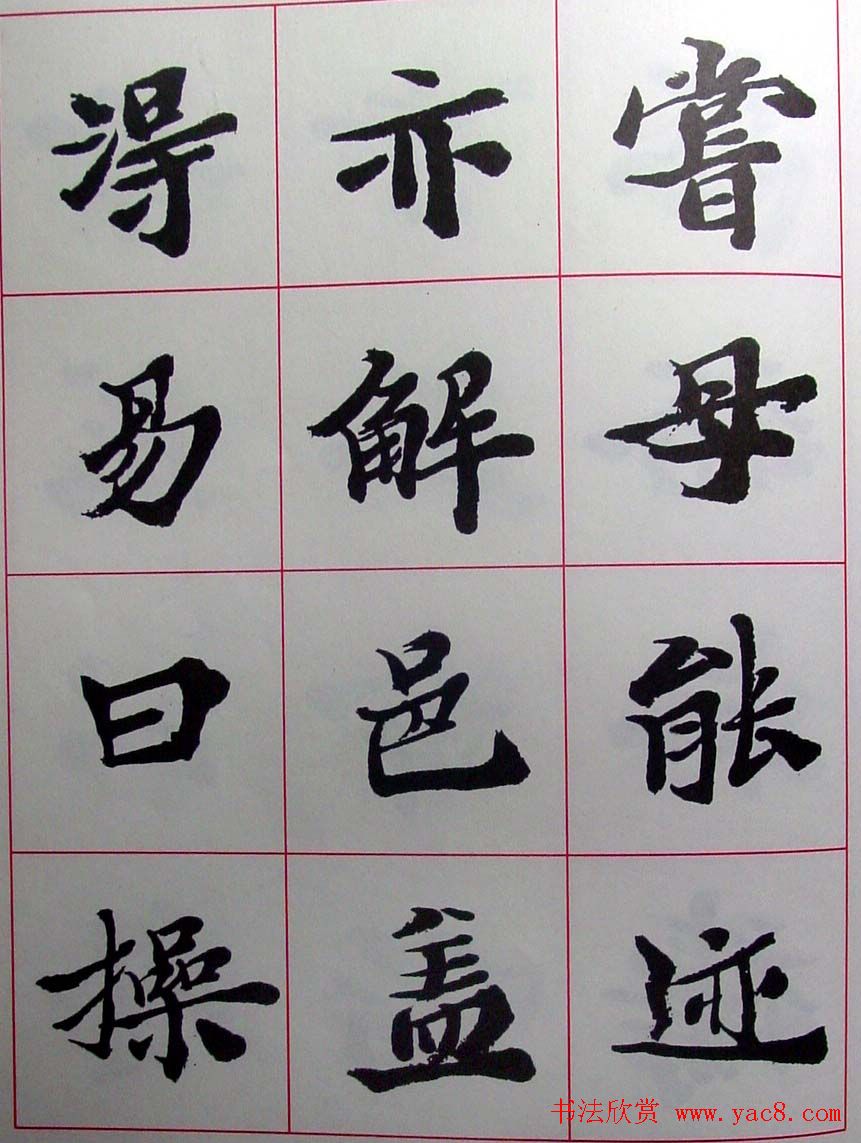 嘗母能迹
亦解邑盖
得易曰操
书法欣赏 www.yac8.com